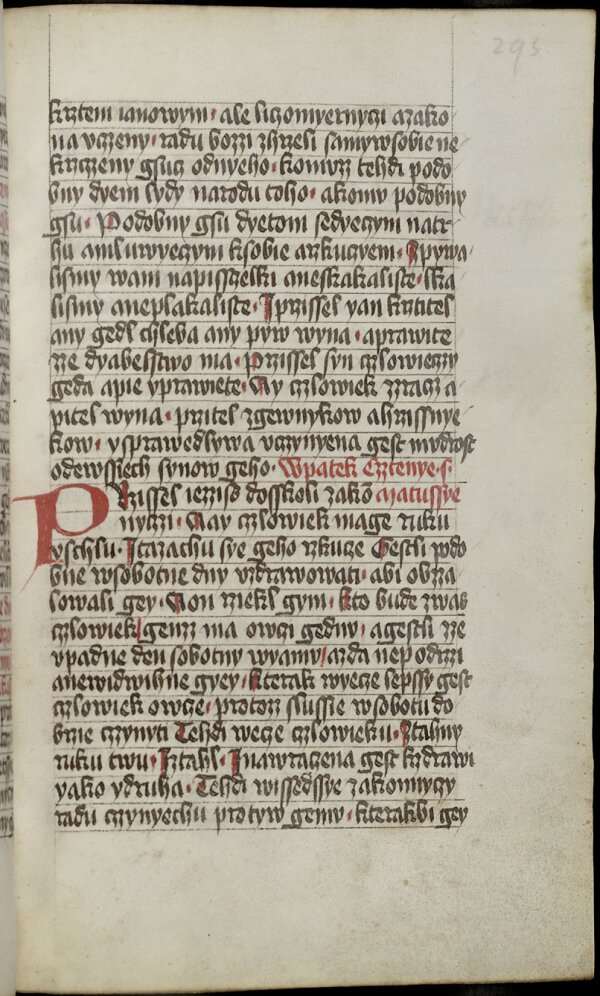 295
krztem ianowym · ale liczomyernyczi azako
na vczeny · radu bozzi zhrzeli samywsobie ne
krzczeny gsucz odnyeho · komuzz tehdi podo
bny dyem lydy narodu toho · akomv podobny
gsu · Podobny gsu dyetom sedyeczym natr
hu amluwyeczym ksobie arzkuczyem · Zpywa
lismy wam napisszelki aneskakaliste · lka
lismy aneplakaliste · I przissel yan krztitel
any gedl chleba any pyw wyna · aprawite
zze dyabelstwo ma · Przissel syn czlowieczy
geda apie yprawiete · Ay czlowiek zzracz a
pitel wyna · przitel zgewnykow ahrzissnye
kow · ysprawedlywa vczynyena gest mvdrost
odewssiech synow geho · Wpatek Cztenye · s ·
Przissel iezzis dosskoli zakon Matussye
nyczi · Aay czlowiek mage ruku
vschlu · I tazachu sye geho rzkucze Gestli podo
bne wsobotne dny vzdrawowati · abi obzza
lowali gey · Aon rziekl gym · kto bude zwas
czlowiek genzz ma owczi gednv · agestli zze
vpadne den sobotny wyamv azda nepodrzzi
anewidwihne gyey · kterak wyecze lepssy gest
czlowiek owcze · protozz slussie wsobotu do
brze czynyti Tehdi wecze czlowieku · Ztahny
ruku twu · I ztahl · I nawraczena gest kzdrawi
yako ydruha · Tehdi wissedssye zakonnyczy
radu czzynyechu protyw gemv · kterakbi gey